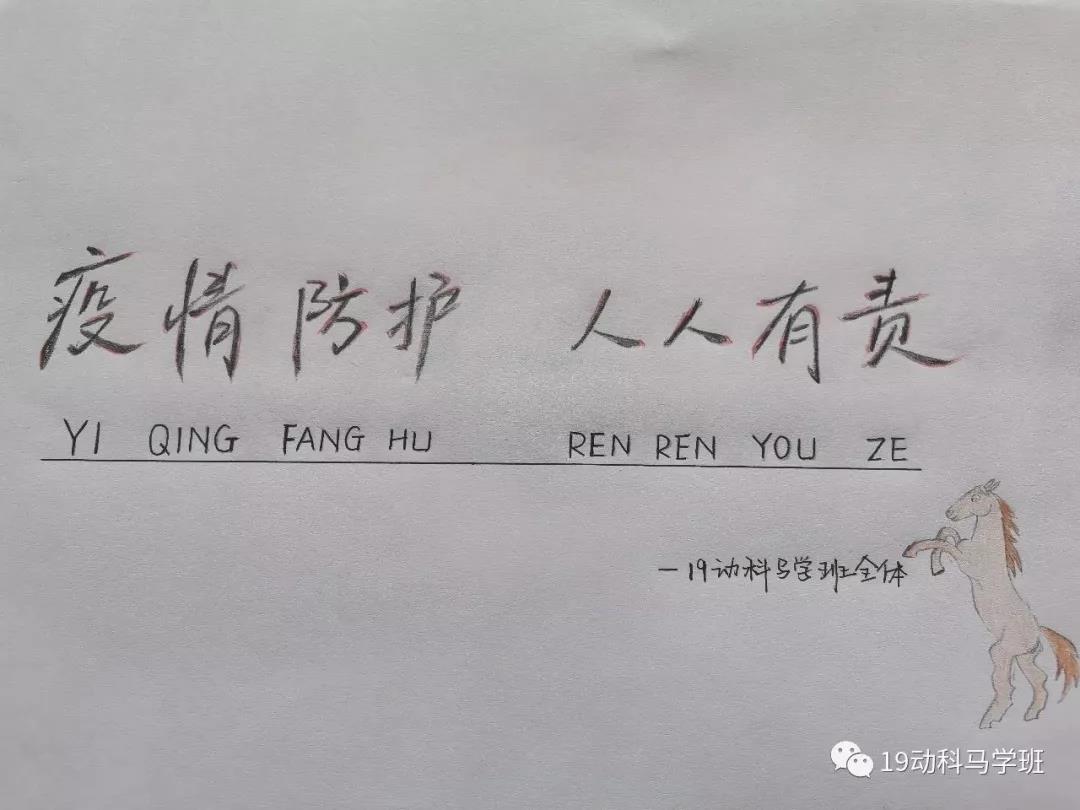 疫情防护 人人有责
YI QING FANG HU REN REN YOU ZE
—19动科马学班全体
19动科马学班